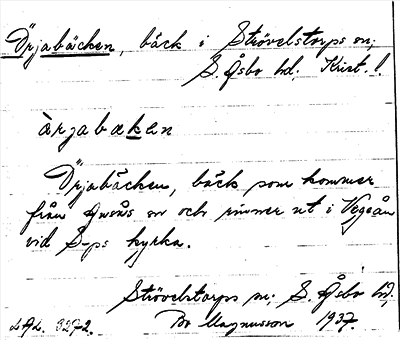 Örjabäcken, bäck i Strövelstorps sn,
S. Åsbo hd. Krist. l.
ärjabäken
Örjabäcken, bäck som kommer
från sn och rinner ut i Vegeån
vid S-ps kyrka.
Strövelstorps sn, S. Åsbo hd,
LAL. 3272. Bo Magnusson 1937.